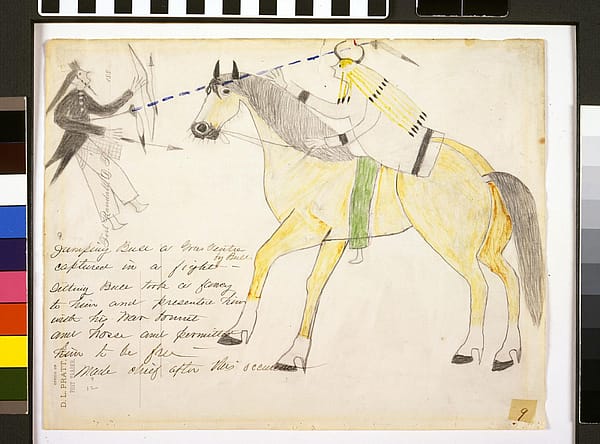 Jumping Bull a Gros Ventre
captured in a fight – by Bull
Sitting Bull took a fancy
to him and presented him
with his War bonnet
and horse and permitted
him to be free –
Made chief after this occurence
Fort Randall D.T.
D. L. PRATT,
POST TRADER,
12
9